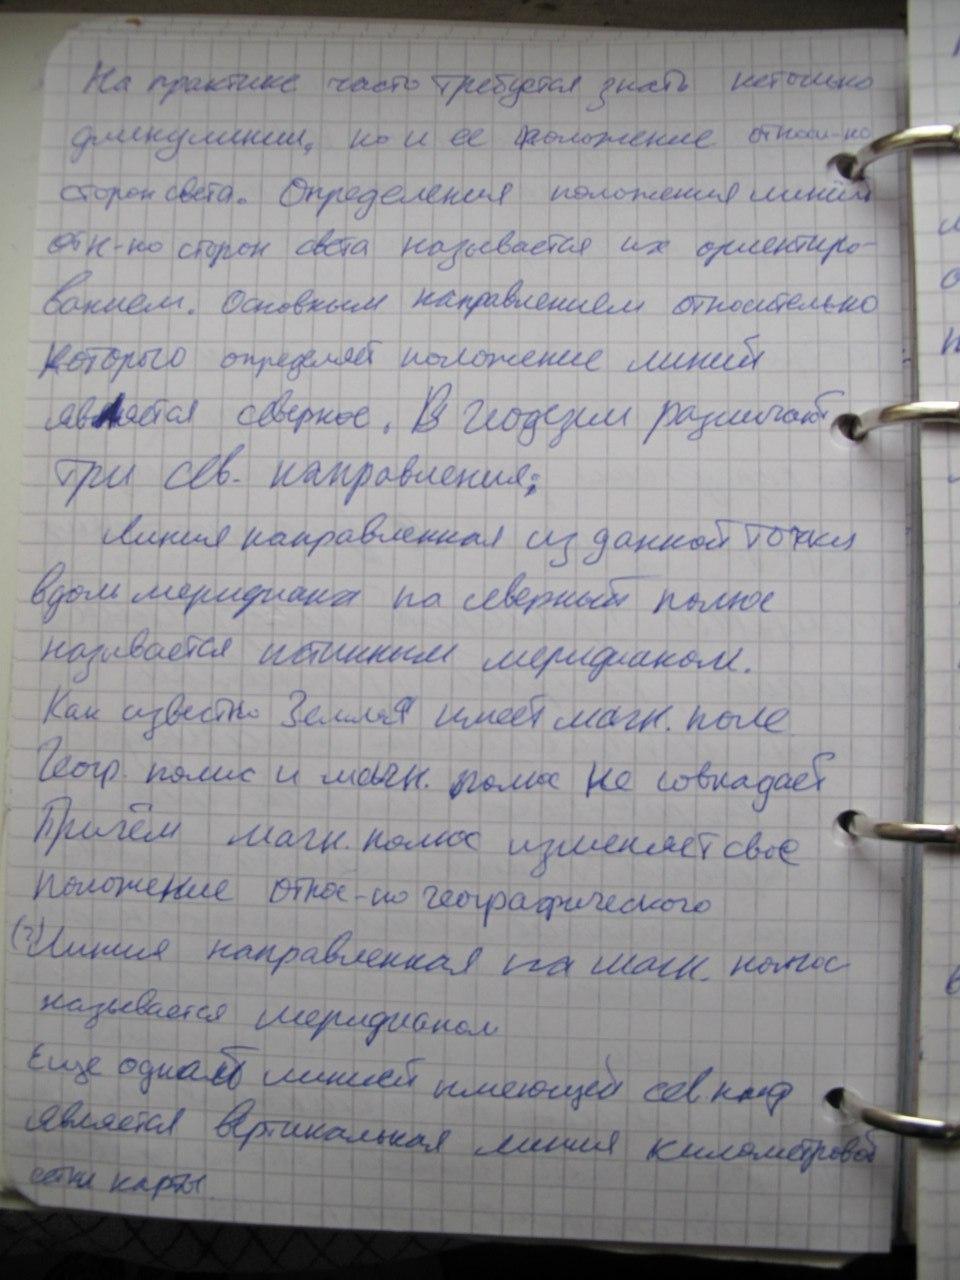 На практике часто требуется знать не только
длину линии, но и ее положение относи-но
сторон света. Определения положения линий
отн-но сторон света называется их ориентиро-
ванием. Основным направлением относительно
которого определяет положение линий
является северное. В геодезии различают
три сев. направления:
Линия направленная из данной точки
вдоль меридиана на северный полюс
называется истинным меридианом.
Как известно Земля имеет магн. поле
Геогр. полюс и магн. полюс не совпадает
Причём магн. полюс изменяет свое
положение относ-но географического
(?) Линия направленная на магн. полюс
называется меридианом
Еще одной линией имеющей сев.
является вертикальная линия километровой
сетки карты.